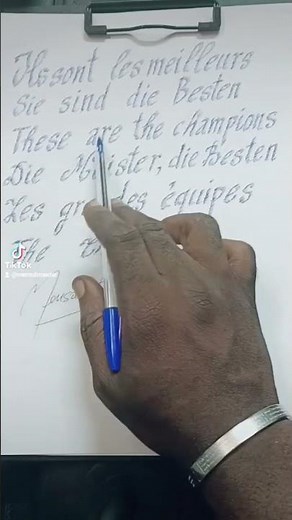 Ils sont les meilleurs
Sie sind die Besten
These are the champions
Die Meister, die Besten
Les équipes
The
TikTok